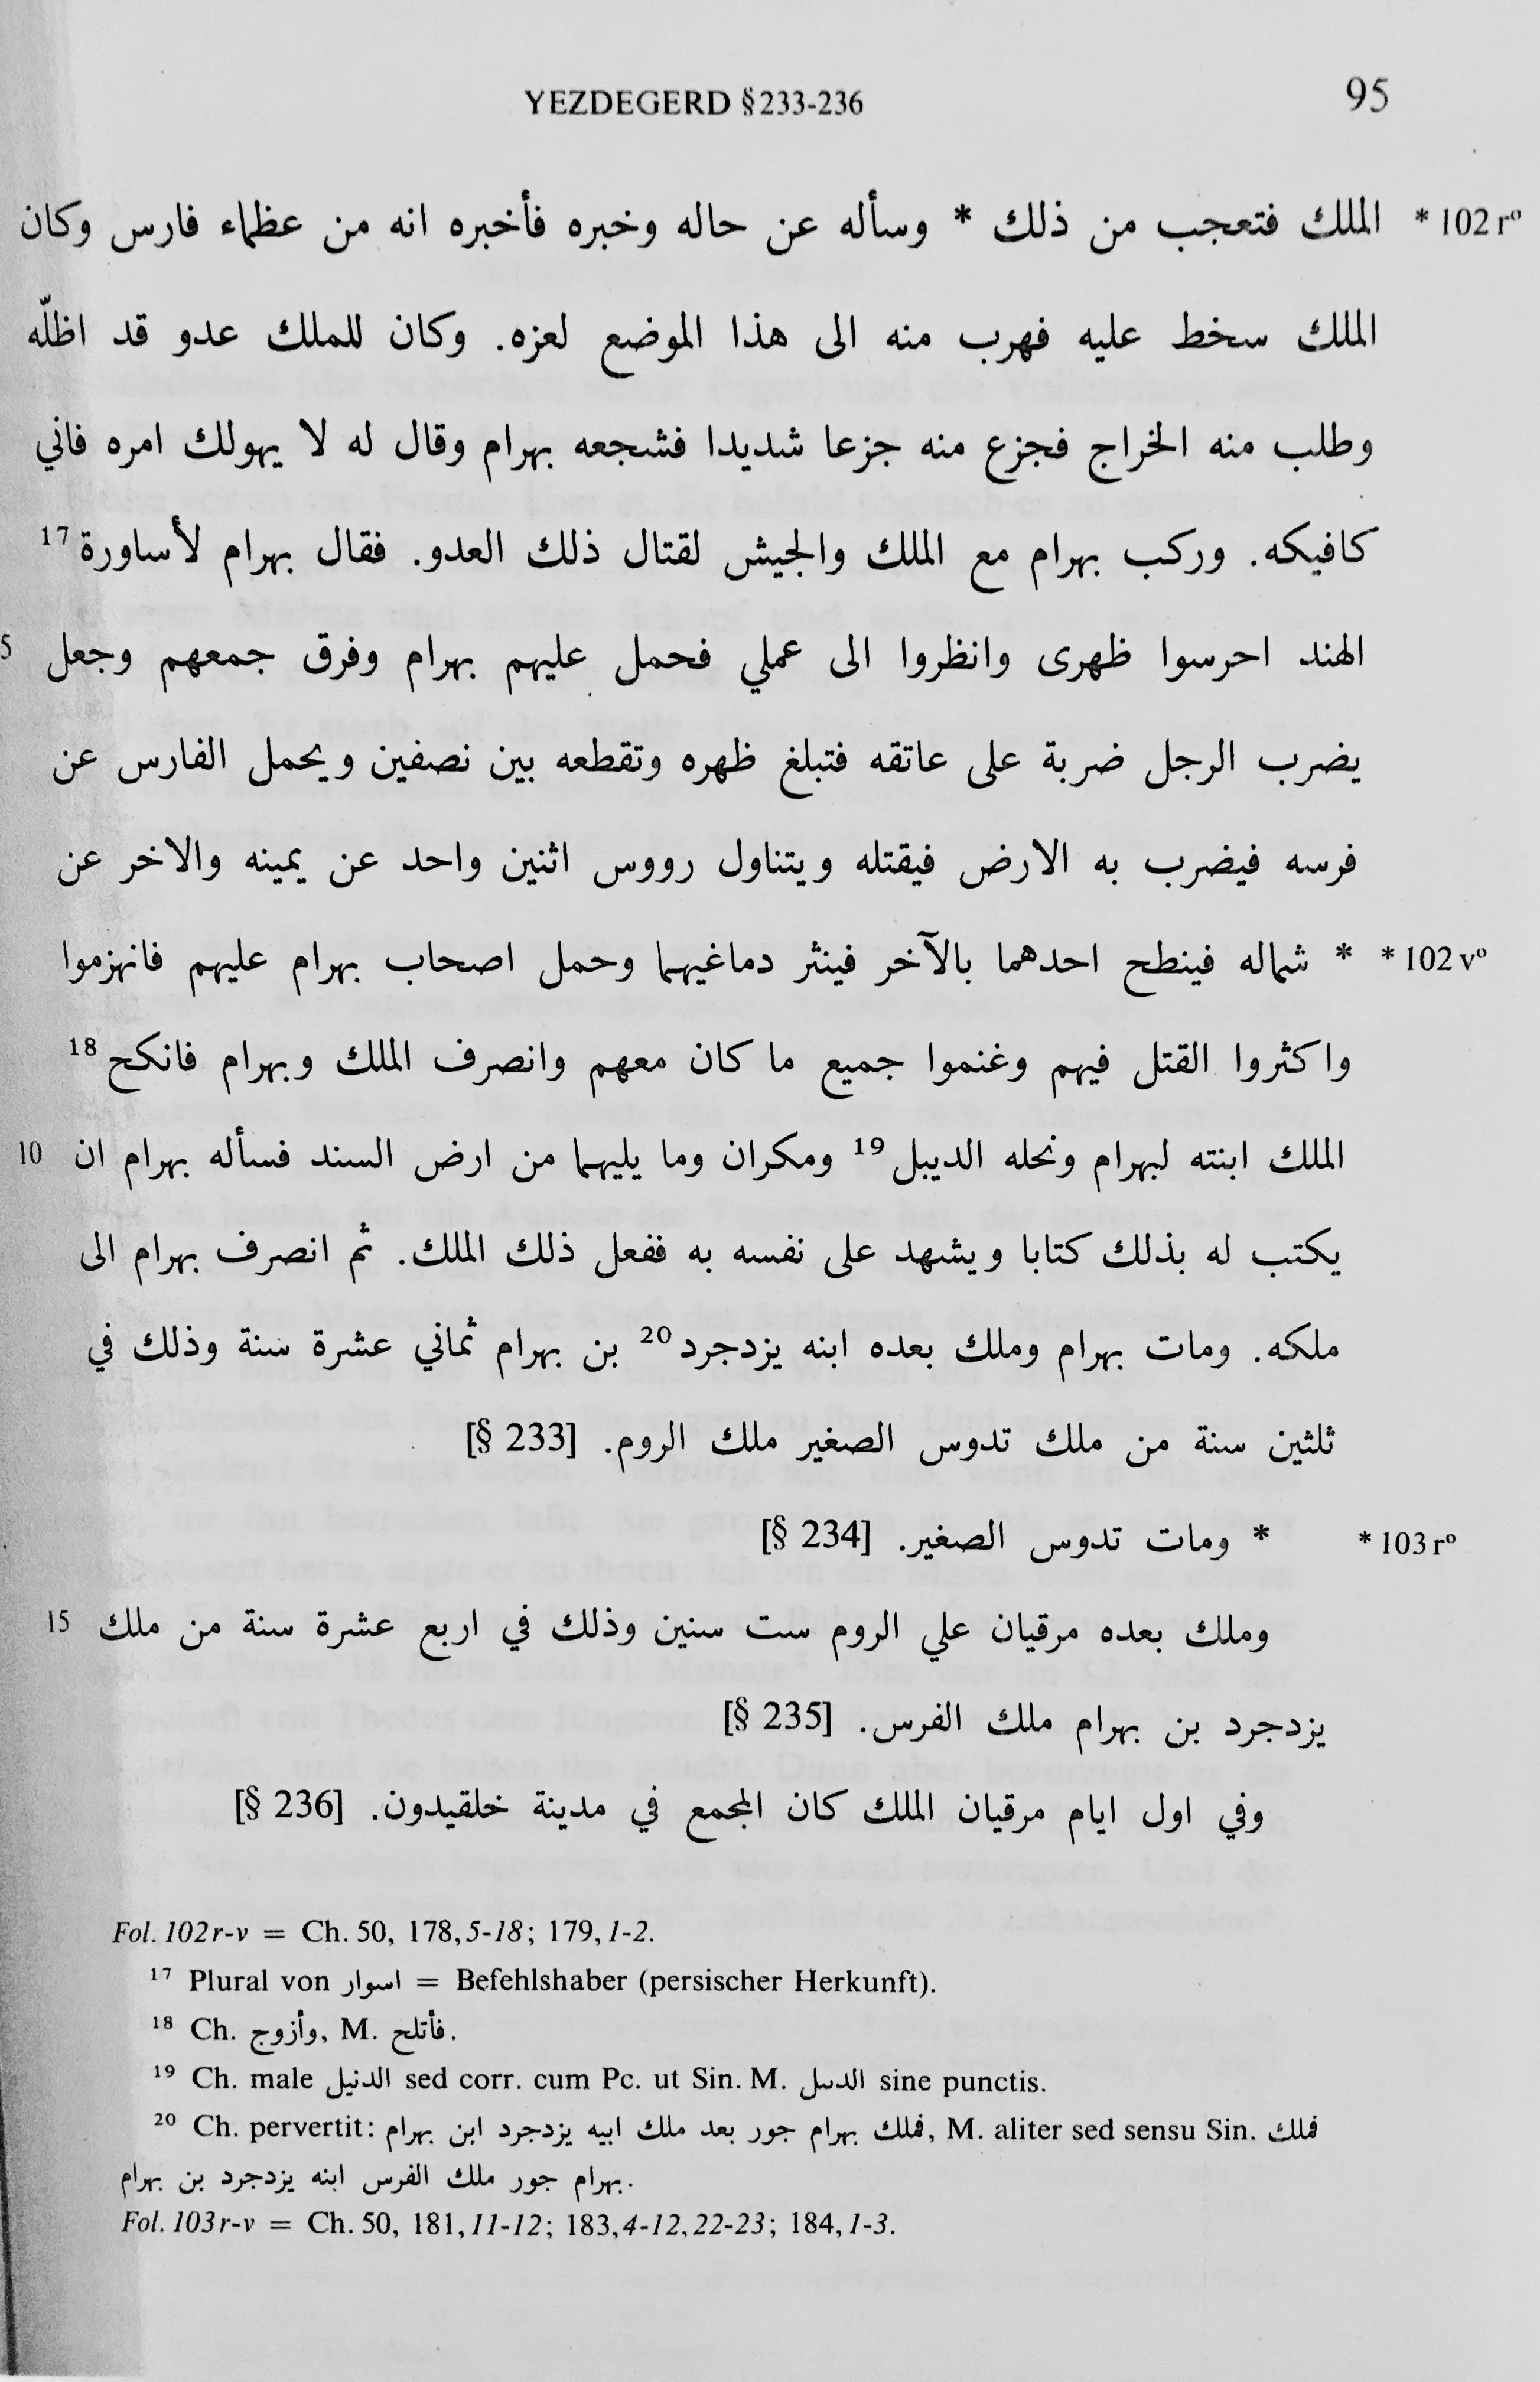 YEZDEGERD § 233-236 95
* 102 rº الملك فتعجب من ذلك * وسأله عن حاله وخبره فأخبره انه من عظماء فارس وكان
الملك سخط عليه فهرب منه الى هذا الموضع لعزه. وكان للملك عدو قد اظلّه
وطلب منه الخراج فجزع منه جزعا شديدا فشجعه بهرام وقال له لا يهولك امره فاني
كافيكه. وركب بهرام مع الملك والجيش لقتال ذلك العدو. فقال بهرام لأساورة 17
الهند احرسوا ظهرى وانظروا الى عملي فحمل عليهم بهرام وفرق جمعهم وجعل 5
يضرب الرجل ضربة على عاتقه فتبلغ ظهره وتقطعه بين نصفين ويحمل الفارس عن
فرسه فيضرب به الارض فيقتله ويتناول رووس اثنين واحد عن يمينه والاخر عن
* 102 vº * شماله فينطح احدهما بالآخر فينثر دماغيهما وحمل اصحاب بهرام عليهم فانهزموا
واكثروا القتل فيهم وغنموا جميع ما كان معهم وانصرف الملك وبهرام فانكح 18
الملك ابنته لبهرام ونحله الديبل 19 ومكران وما يليهما من ارض السند فسأله بهرام ان 10
يكتب له بذلك كتابا ويشهد على نفسه به ففعل ذلك الملك. ثم انصرف بهرام الى
ملكه. ومات بهرام وملك بعده ابنه يزدجرد 20 بن بهرام ثماني عشرة سنة وذلك في
ثلثين سنة من ملك تدوس الصغير ملك الروم. [§ 233]
* 103 rº * ومات تدوس الصغير. [§ 234]
وملك بعده مرقيان علي الروم ست سنين وذلك في اربع عشرة سنة من ملك 15
يزدجرد بن بهرام ملك الفرس. [§ 235]
وفي اول ايام مرقيان الملك كان المجمع في مدينة خلقيدون. [§ 236]
Fol. 102 r-v = Ch. 50, 178, 5-18; 179, 1-2.
17 Plural von اسوار = Befehlshaber (persischer Herkunft).
18 Ch. وأزوج, M. فأتلح.
19 Ch. male الدنيل sed corr. cum Pc. ut Sin. M. الدىىل sine punctis.
20 Ch. pervertit: فملك بهرام جور بعد ملك ابيه يزدجرد ابن بهرام, M. aliter sed sensu Sin. فملك
بهرام جور ملك الفرس ابنه يزدجرد بن بهرام.
Fol. 103 r-v = Ch. 50, 181, 11-12; 183, 4-12, 22-23; 184, 1-3.